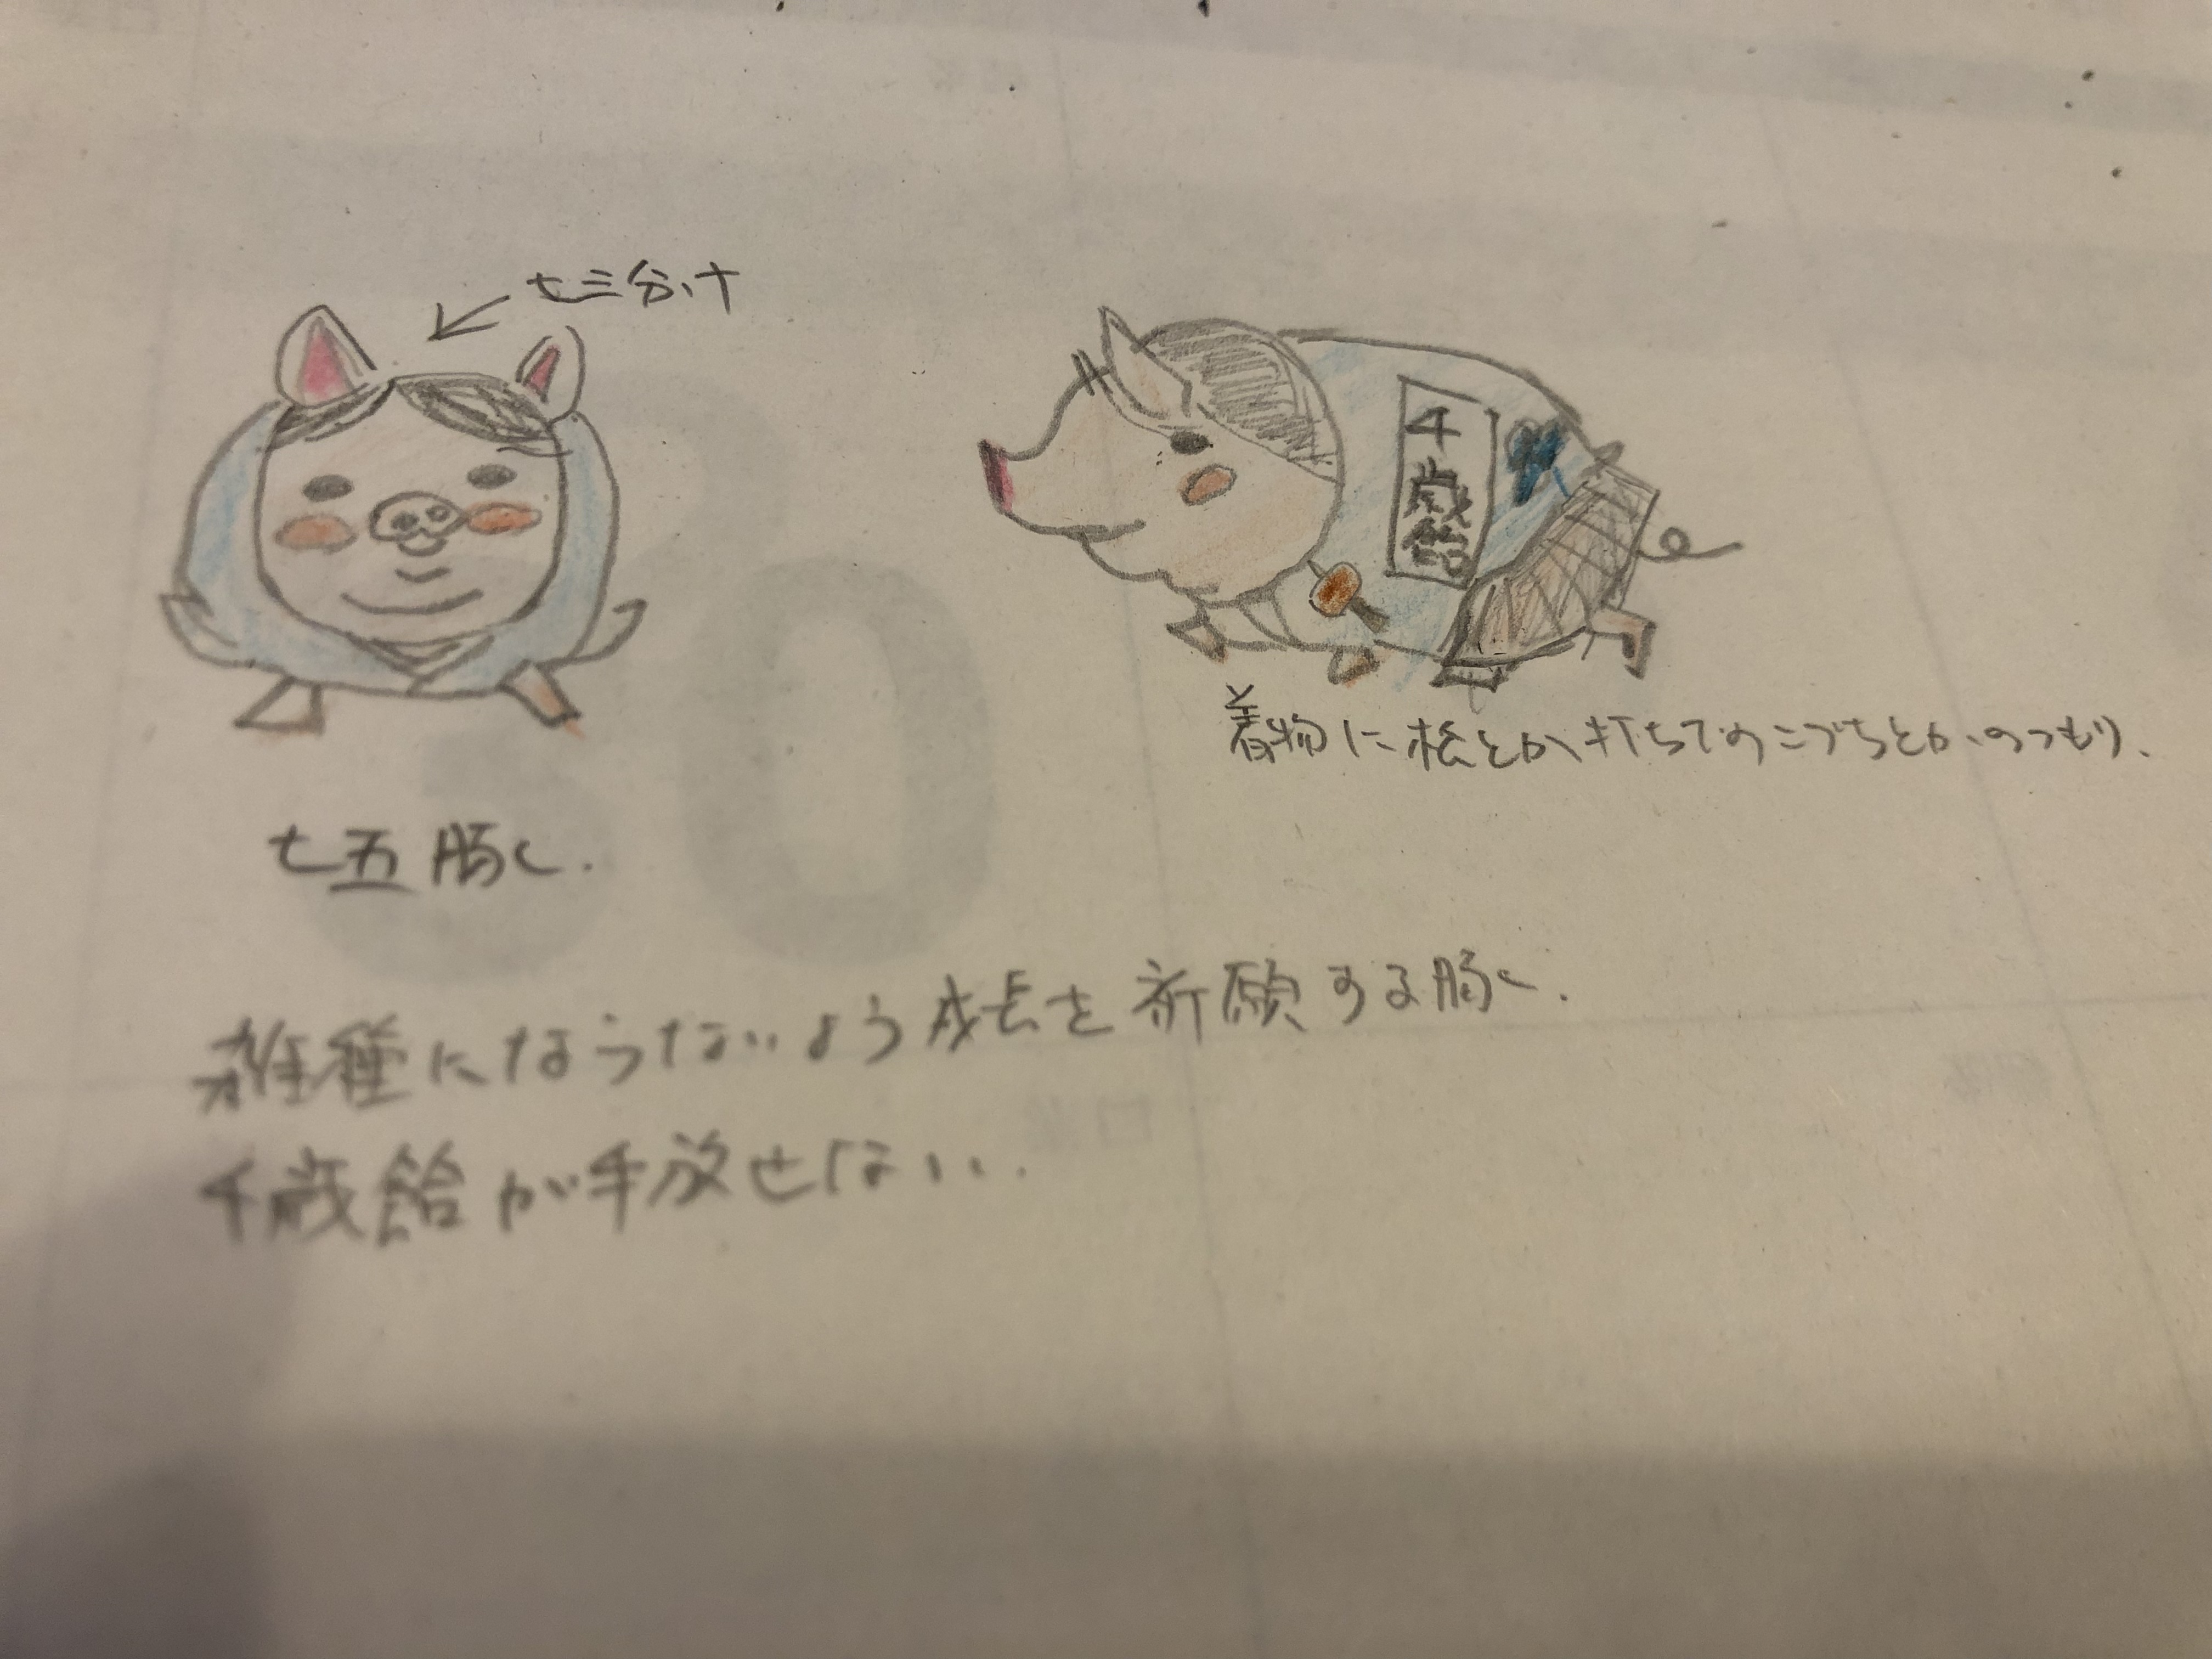 七三分け
千歳飴
着物に松とか打ちでのこづちとかのつもり、
七五豚し.
雑種にならないよう成長を祈願する豚し.
千歳飴が手放せない.
30